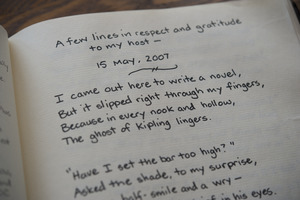 A few lines in respect and gratitude
to my host —
15 May, 2007
I came out here to write a novel,
But it slipped right through my fingers,
Because in every nook and hollow,
The ghost of Kipling lingers.
"Have I set the bar too high?"
Asked the shade, to my surprise,
half-smile and a wry —
in his eyes.